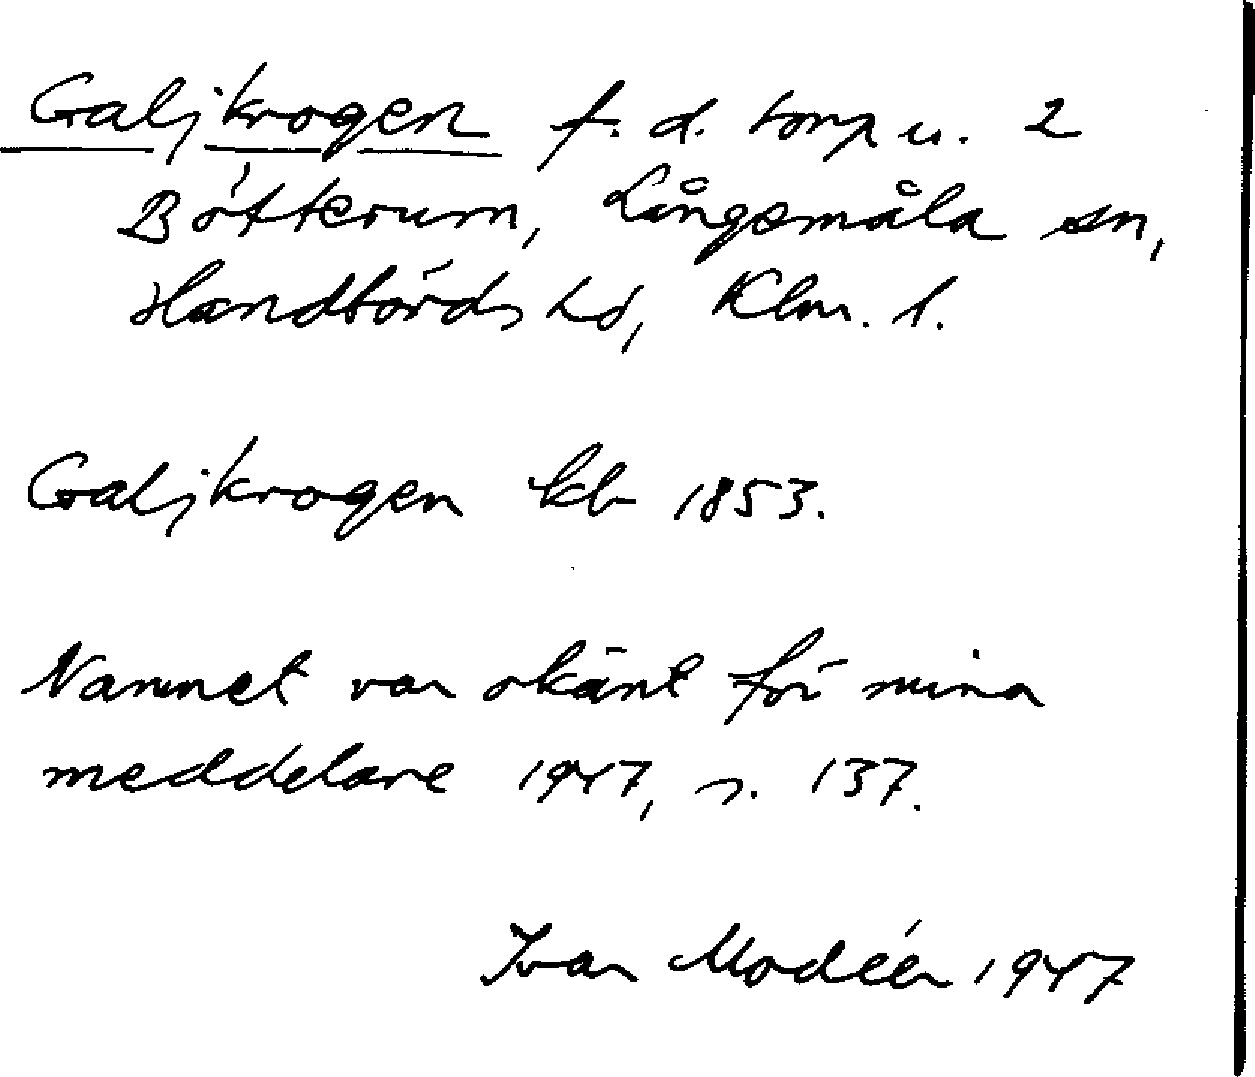 Galjkrogen f. d. torp u. 2
Bötterum, Långemåla sn,
Handbörds hd, Klm. l.
Galjkrogen kb 1853.
Namnet var okänt för mina
meddelare 1947, s. 137.
Ivar Modéer 1947